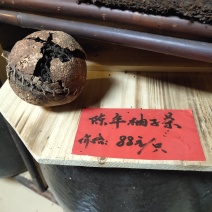 陈年柚子茶
价格:88元/只